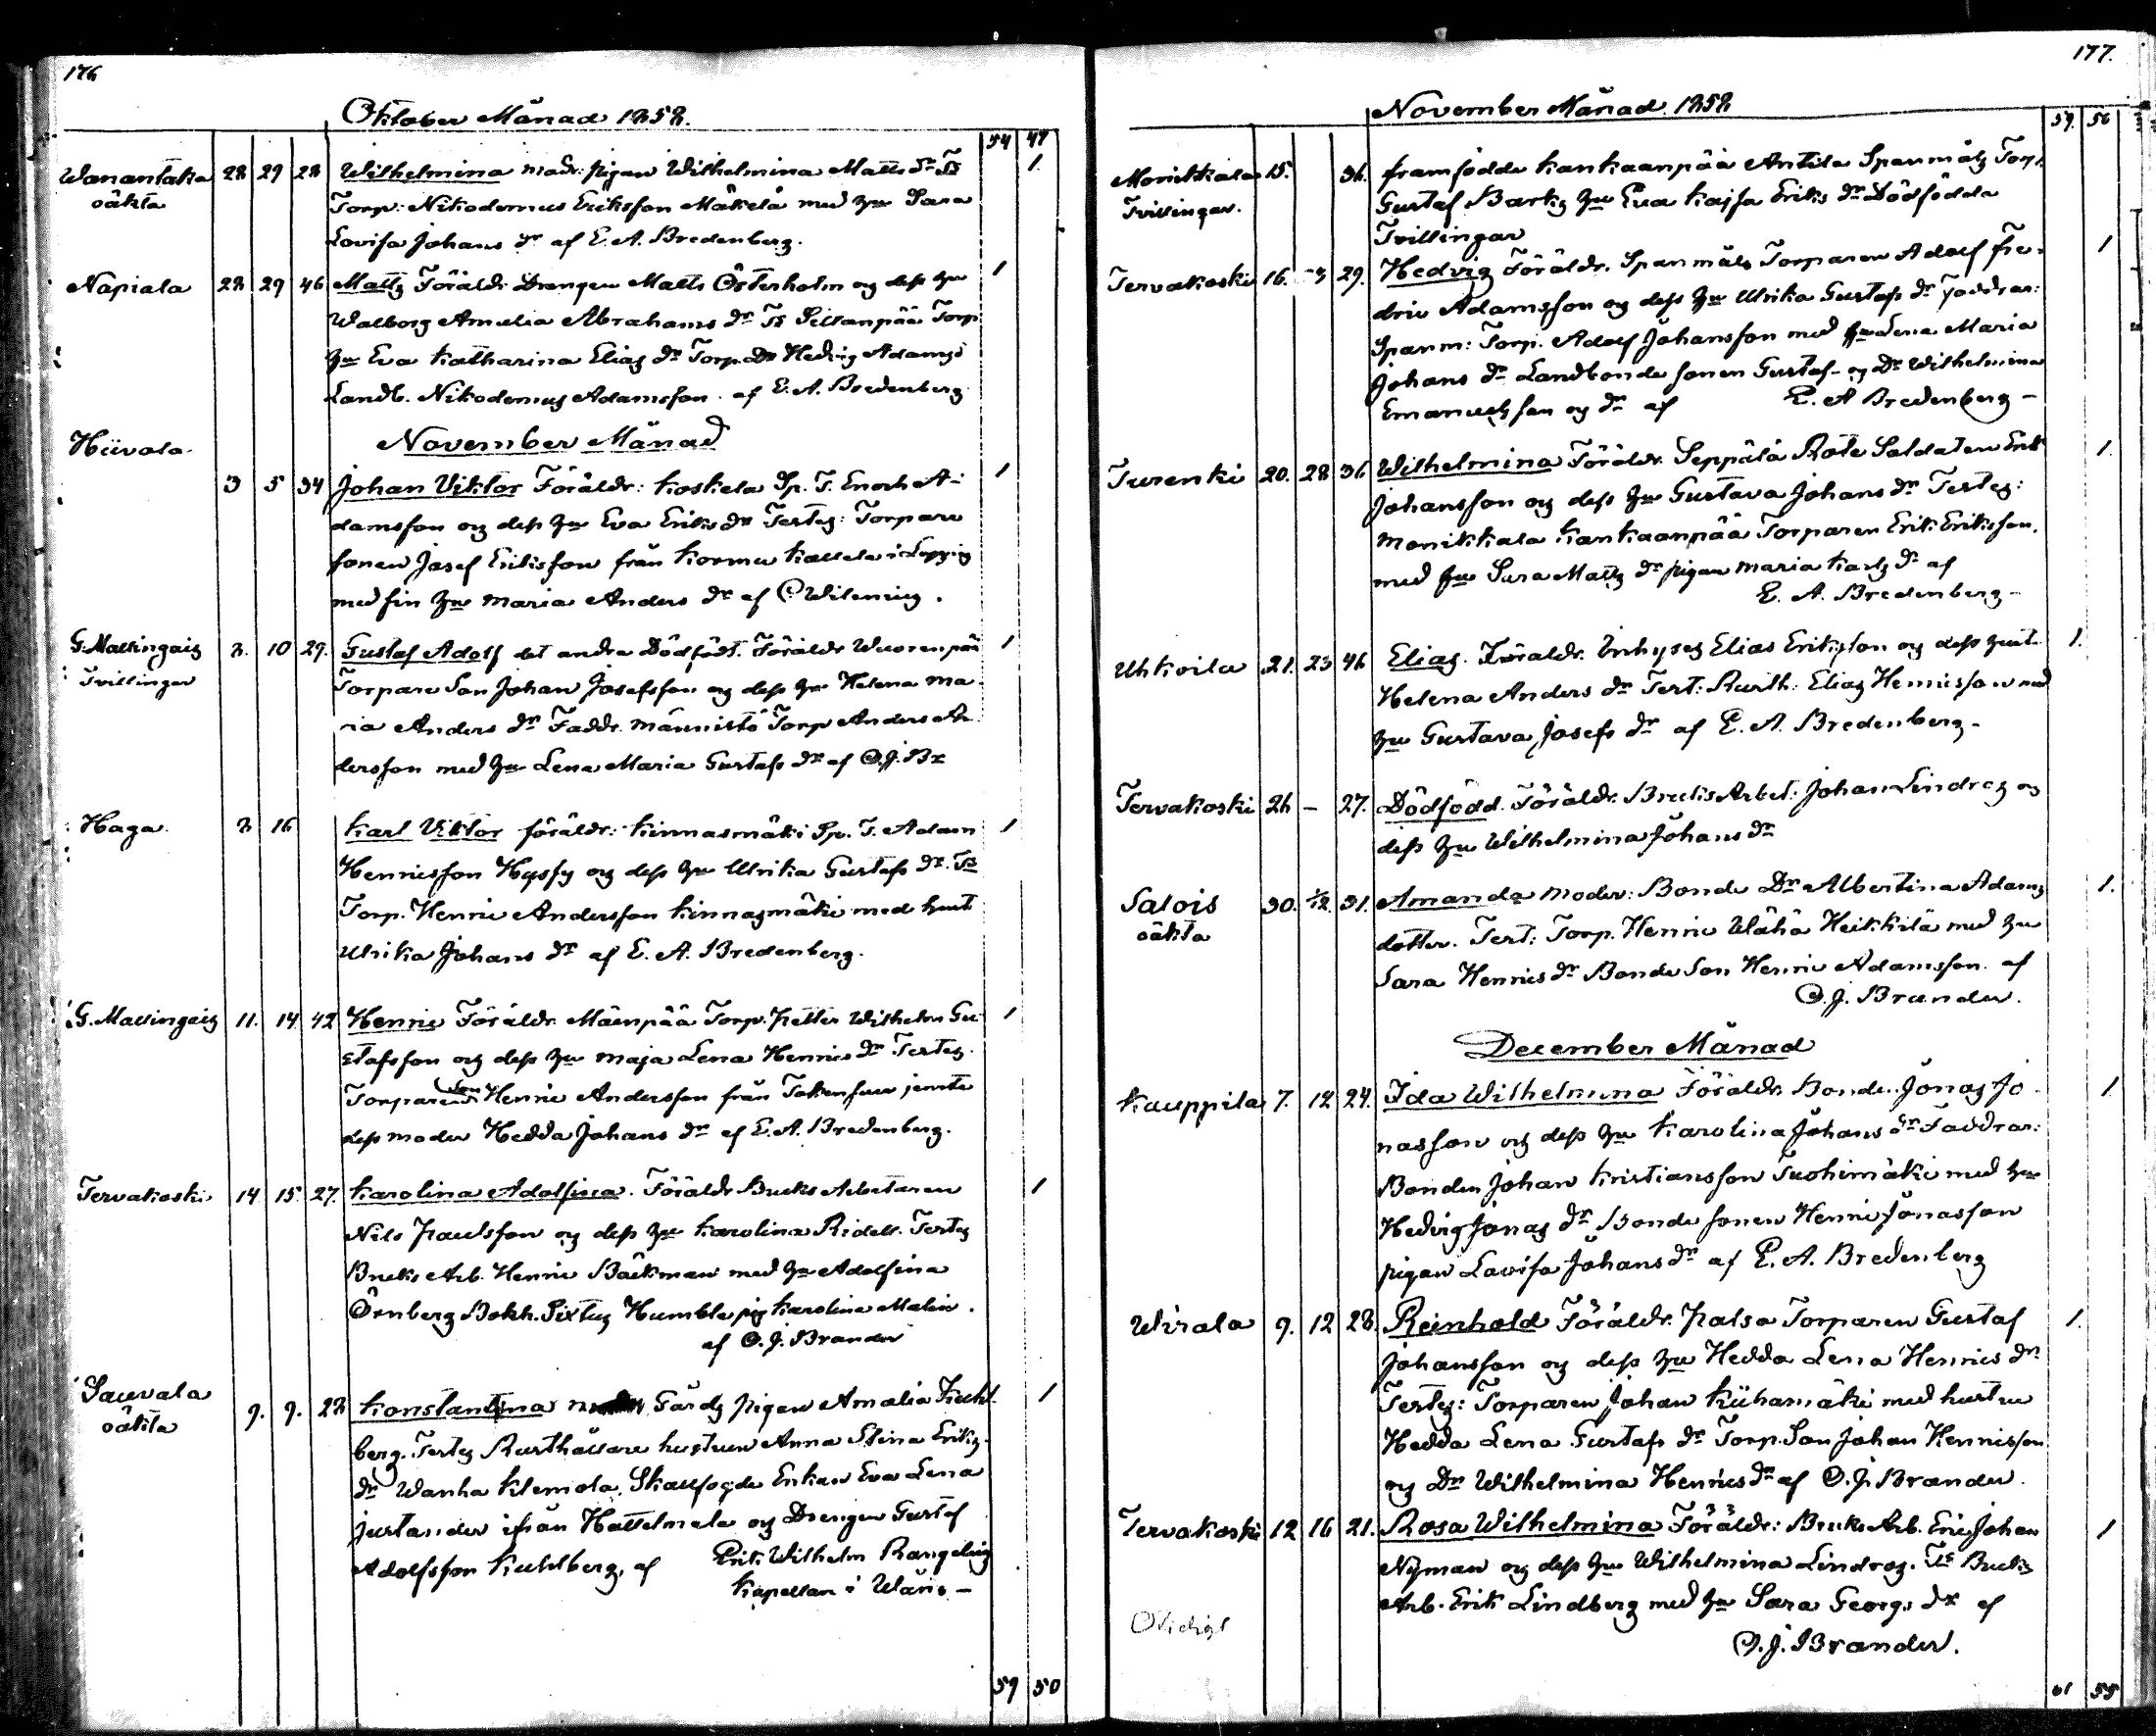 176
Oktober Månad 1858.
54 47
Wanantaka 28 29 28 Wilhelmina modr: pigan Wilhelmina Matts dr Ts 1.
oäkta Torp: Nikodemus Eriksson Mäkelä med hu Sara
Lovisa Johans dr af E. A. Bredenberg.
Napiala 28 29 46 Matts Föräldr. Drengen Matts Österholm og dess hu 1
Walborg Amalia Abrahams dr Ts Sillanpää Torp
hu Eva Katharina Elias dr Torp. Dr Hedvig Adams
Landb. Nikodemus Adamsson. af E. A. Bredenberg
Hiivola November Månad
3 5 34 Johan Viktor Föräldr: Koskela Sp. T. Enoch A- 1
damsson og dess hu Eva Eriks dr Testes: Torpare
sonen Josef Eriksson från Kormu i Loppis
med sin hu Maria Anders dr af
G. Mallingais 8. 10 29. Gustaf Adolf det andra Dödfödt. Föräldr 1
Tvillingar Torpare Son Johan Josefsson og dess hu Helena Ma-
ria Anders dr Faddr. Männistö Torp Anders An-
dersson med hu Lena Maria Gustafs dr af O. J. Br
Haga 8 16 Karl Viktor föräldr: Kinnasmäki Sp. T. Adam 1
Henricsson Hyssy og dess hu Ulrika Gustafs dr. Ts
Torp. Henric Andersson Kinnasmäki med hust
Ulrika Johans dr af E. A. Bredenberg.
G. Mallingais 11. 14 42 Henric Föräldr. Mäenpää Torp. Petter Wilhelm Gu- 1
stafsson og dess hu Maja Lena Henrics dr Testes
Torparen son Henric Andersson från jemte
dess moder Hedda Johans dr af E. A. Bredenberg.
Tervakoski 14 15 27. Karolina Adolfina. Föräldr Bruks Arbetaren 1
Nils Paulsson og dess hu Karolina Ridell. Testes
Bruks Arb. Henric Bäckman med hu Adolfina
Örnberg Bokh. Sixtus Humble pig Karolina Malin.
af O. J. Brander
Sauvala 9. 9. 28 Konstantina Gårds pigan Amalia Kuhl- 1
oäkta berg. Testes Rusthållare hustrun Anna Stina Eriks
dr Wanha Klemola, Skallfogde Enkan Eva Lena
Justander ifrån Hattelmala og Drengen Gustaf
Adolfsson Kuhlberg, af Erik Wilhelm Rangelius
Kapellan i Wånå -
59 50
177.
November Månad 1858
59. 56
Monikkala 15. 36. framfödde Kankaanpää Antila Spanmåls Torp.
Tvillingar. Gustaf Barks hu Eva Kajsa Eriks dr Dödfödda
Tvillingar
Tervakoski 16. 29. Hedvig Föräldr. Spanmåls Torparen Adolf Fre- 1
dric Adamsson og dess hu Ulrika Gustafs dr Faddrar:
Spanm: Torp. Adolf Johansson med hu Lena Maria
Johans dr Landbonde sonen Gustaf- og Dr Wilhelmina
Emanuels son og dr af E. A Bredenberg -
Turenki 20. 28 36 Wilhelmina Föräldr. Seppälä Rote Soldaten Erik 1.
Johansson og dess hu Gustava Johans dr Testes:
Monikkala Kankaanpää Torparen Erik Eriksson.
med hu Sara Matts dr pigan Maria Karls dr af
E. A. Bredenberg -
Uhkoila 21. 23 46 Elias. Föräldr. Inhyses Elias Eriksson og dess hust. 1.
Helena Anders dr Test: Rusth: Elias Henricsson med
hu Gustava Josefs dr af E. A. Bredenberg -
Tervakoski 26 - 27. Dödfödd. Föräldr. Bruks Arbet: Johan Lindros og
dess hu Wilhelmina Johans dr
Salois 30. 1/12. 31. Amanda Moder: Bonde Dr Albertina Adams 1.
oäkta dotter. Test: Torp. Henric Wähä Heikkilä med hu
Sara Henrics dr Bonde Son Henric Adamsson. af
O. J. Brander.
December Månad
Kauppila 7. 12 24. Ida Wilhelmina Föräldr. Bonden Jonas Jo- 1
nasson og dess hu Karolina Johans dr Faddrar:
Bonden Johan Kristiansson Tuohimäki med hu
Hedvig Jonas dr Bonde sonen Henric Jonasson
pigan Lovisa Johans dr af E. A. Bredenberg
Wirala 9. 12 28. Reinhold Föräldr. Palsa Torparen Gustaf 1.
Johansson og dess hu Hedda Lena Henrics dr
Testes: Torparen Johan Kiihamäki med hustru
Hedda Lena Gustafs dr Torp. Son Johan Henricsson
og Dr Wilhelmina Henrics dr af O. J. Brander.
Tervakoski 12 16 21. Rosa Wilhelmina Föräldr: Bruks Arb. Eric Johan 1
Nyman og dess hu Wilhelmina Lindros. Ts Bruks
Arb. Erik Lindberg med hu Sara Georgs dr af
O. J. Brander.
61 55